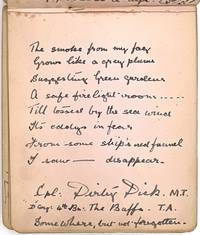 The smoke from my fag
Grows like a grey plume
Suggesting Green gardens
A safe firelight room.....
Till tossed by the sea wind
Its eddys in fear
From some ship's red funnel
I saw — disappear.
Cpl: Dirty Dick. M.T.
D Coy: 4th Bn: The Buffs. T.A.
Somewhere, but not forgotten.